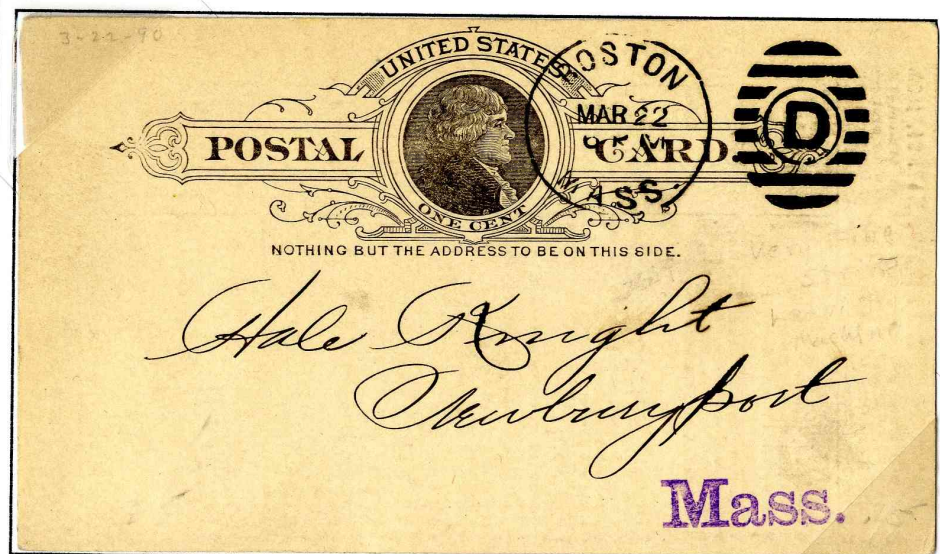 3-22-90
UNITED STATES
POSTAL CARD
ONE CENT
BOSTON
MAR 22
MASS.
D
NOTHING BUT THE ADDRESS TO BE ON THIS SIDE.
Hale Knight
Newburyport
Mass.